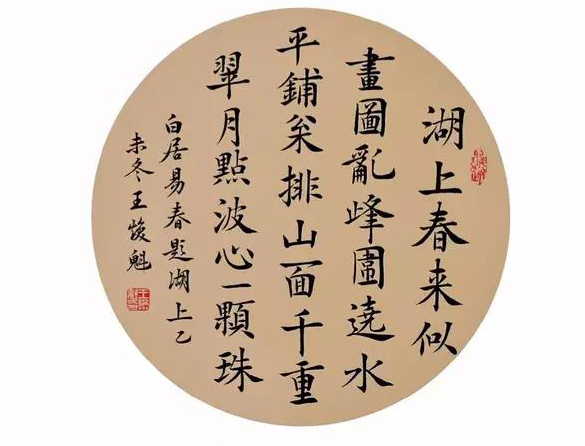 湖上春来似
畫圖亂峰圍遶水
平鋪枀排山面千重
翠月點波心一顆珠
白居易春題湖上乙
未冬王㷻魁